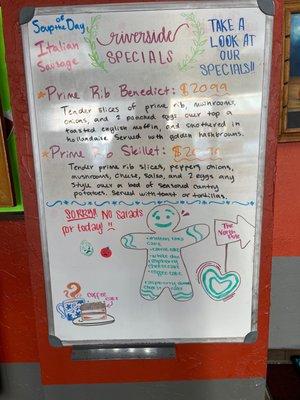 Soup of the Day
Italian
Sausage
riverside
SPECIALS
TAKE A
LOOK AT
OUR
SPECIALS!!
Prime Rib Benedict: $20.99
Tender slices of prime rib, mushrooms,
onions, and 2 poached eggs over top a
toasted english muffin, and smothered in
hollandaise. Served with golden hashbrowns.
Prime Rib Skillet:
Tender prime rib slices, peppers, onions,
mushrooms, cheese, salsa, and 2 eggs any
style over a bed of seasoned country
potatoes. Served with toast or tortillas.
SORRY! No Salads
for today!
cake
raspberry
cheesecake
coffee cake
The
North
Pole
coffee
cake